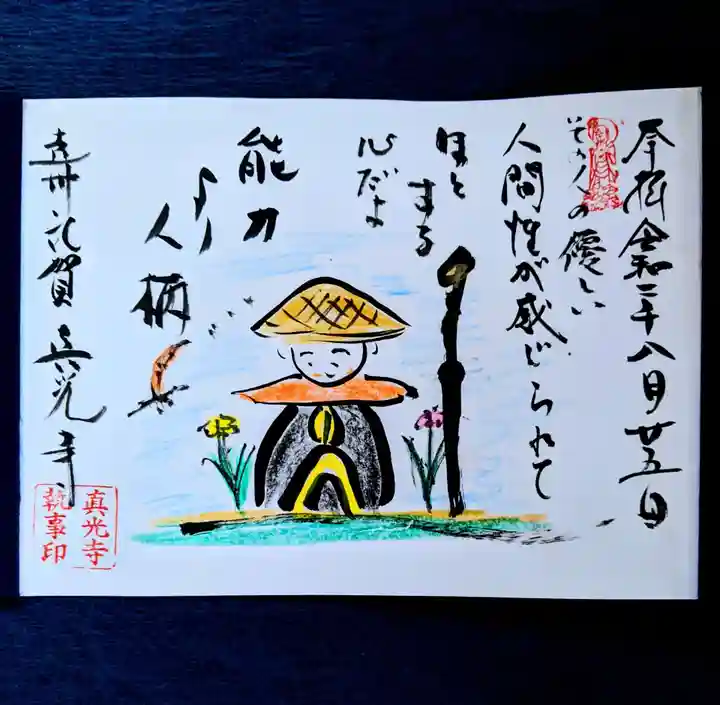 奉拝 令和二年八月廿五日
その人の優しい
人間性が感じられて
ほっと
する
心だよ
能力
より
人柄
真光寺
真光寺
執事印